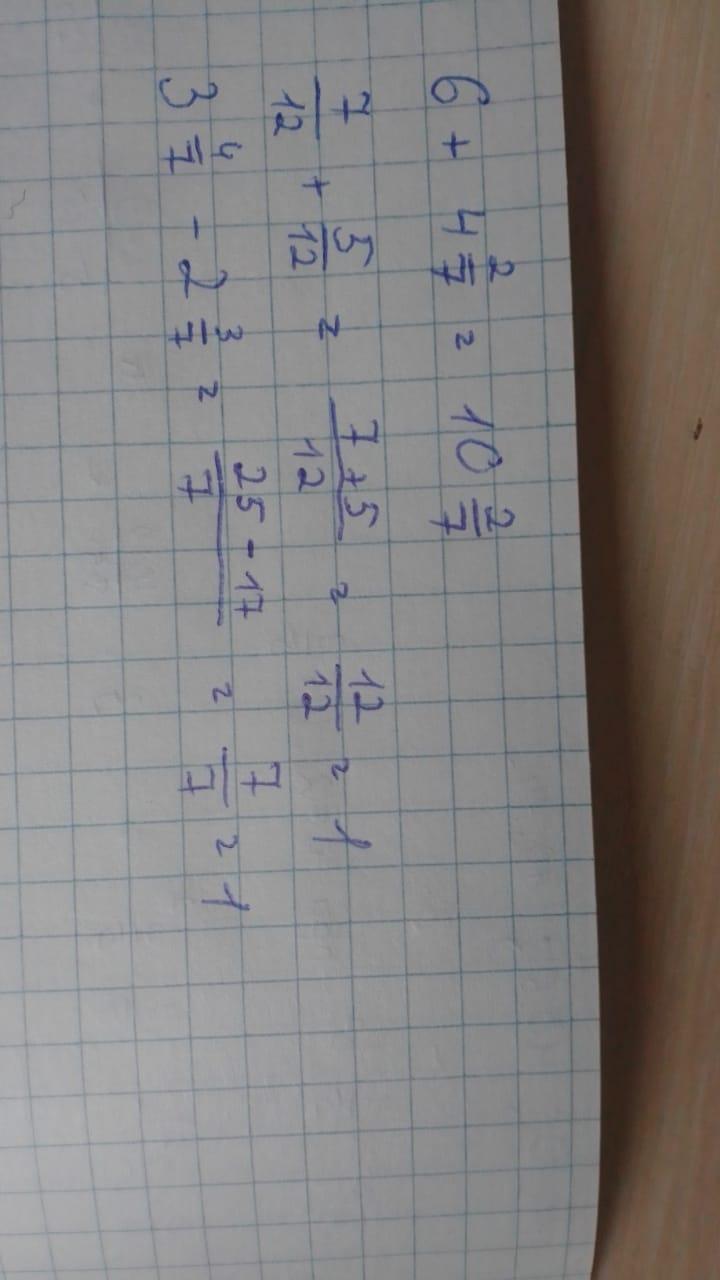 6 + 4 2/7 = 10 2/7
7/12 + 5/12 = 7+5/12 = 12/12 = 1
3 4/7 - 2 3/7 = 25-17/7 = 7/7 = 1